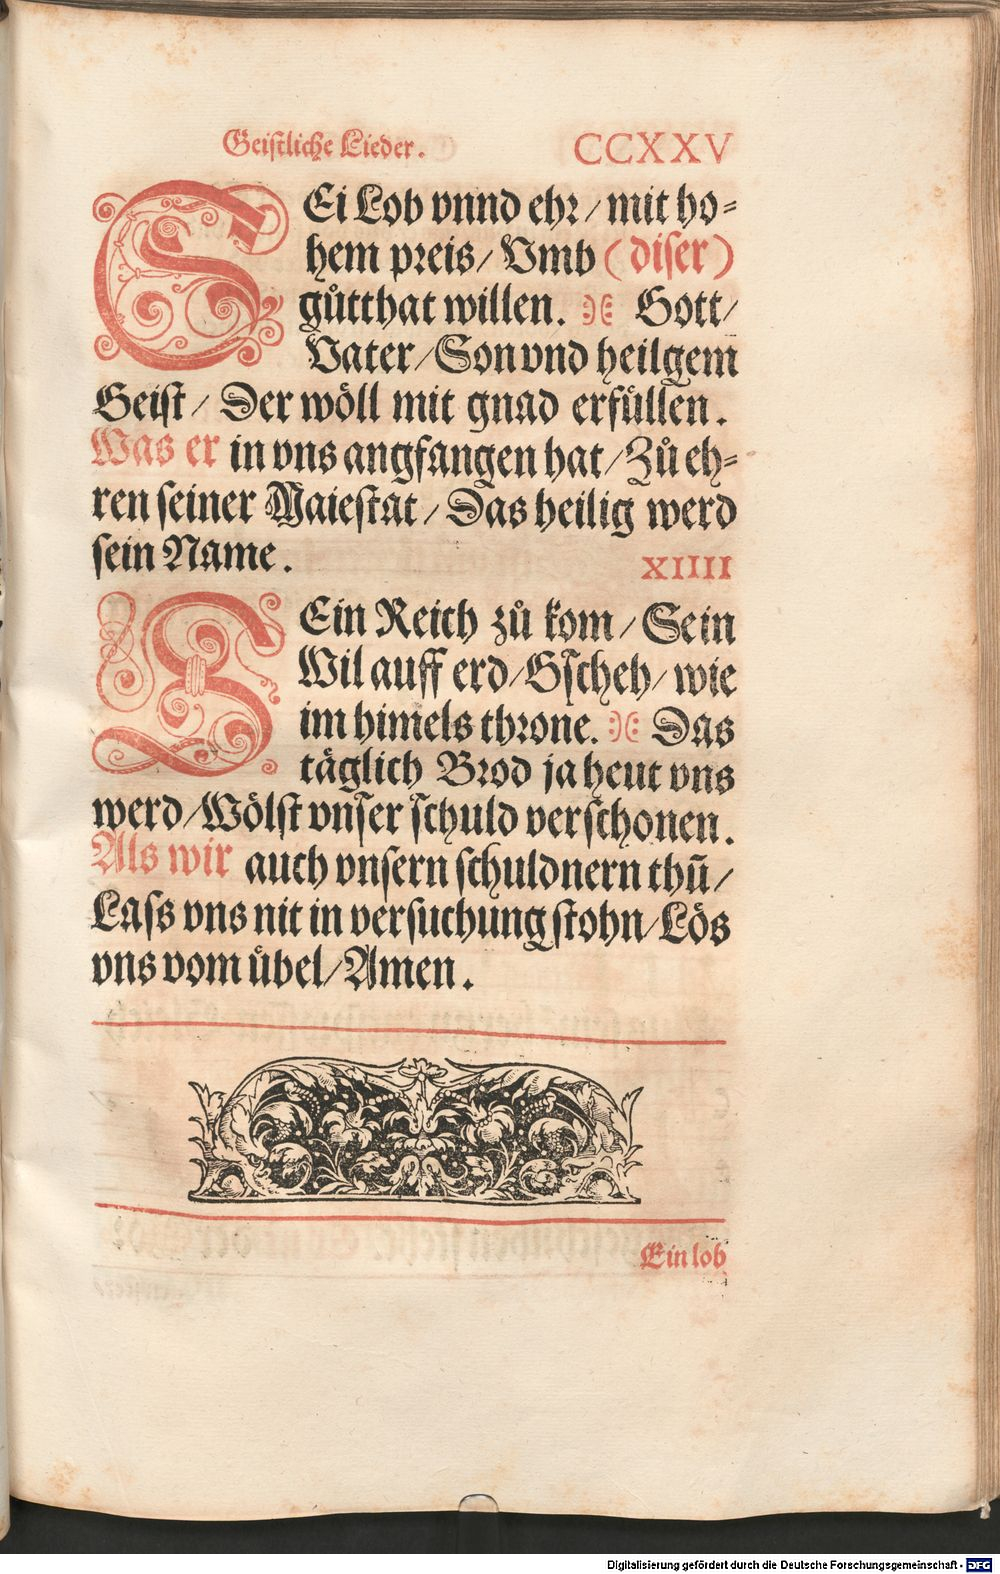 Geistliche Lieder. CCXXV
SEi Lob vnnd ehr / mit ho=
hem preis / Vmb (diser)
gůtthat willen. Gott /
Vater / Son vnd heilgem
Geist / Der wöll mit gnad erfüllen.
Was er in vns angfangen hat / Zů eh=
ren seiner Maiestat / Das heilig werd
sein Name.
XIIII
SEin Reich zů kom / Sein
Wil auff erd / Gscheh / wie
im himels throne. Das
täglich Brod ja heut vns
werd / Wölst vnser schuld verschonen.
Als wir auch vnsern schuldnern thũ /
Lass vns nit in versuchung stohn / Lös
vns vom übel / Amen.
Ein lob
Digitalisierung gefördert durch die Deutsche Forschungsgemeinschaft - DFG